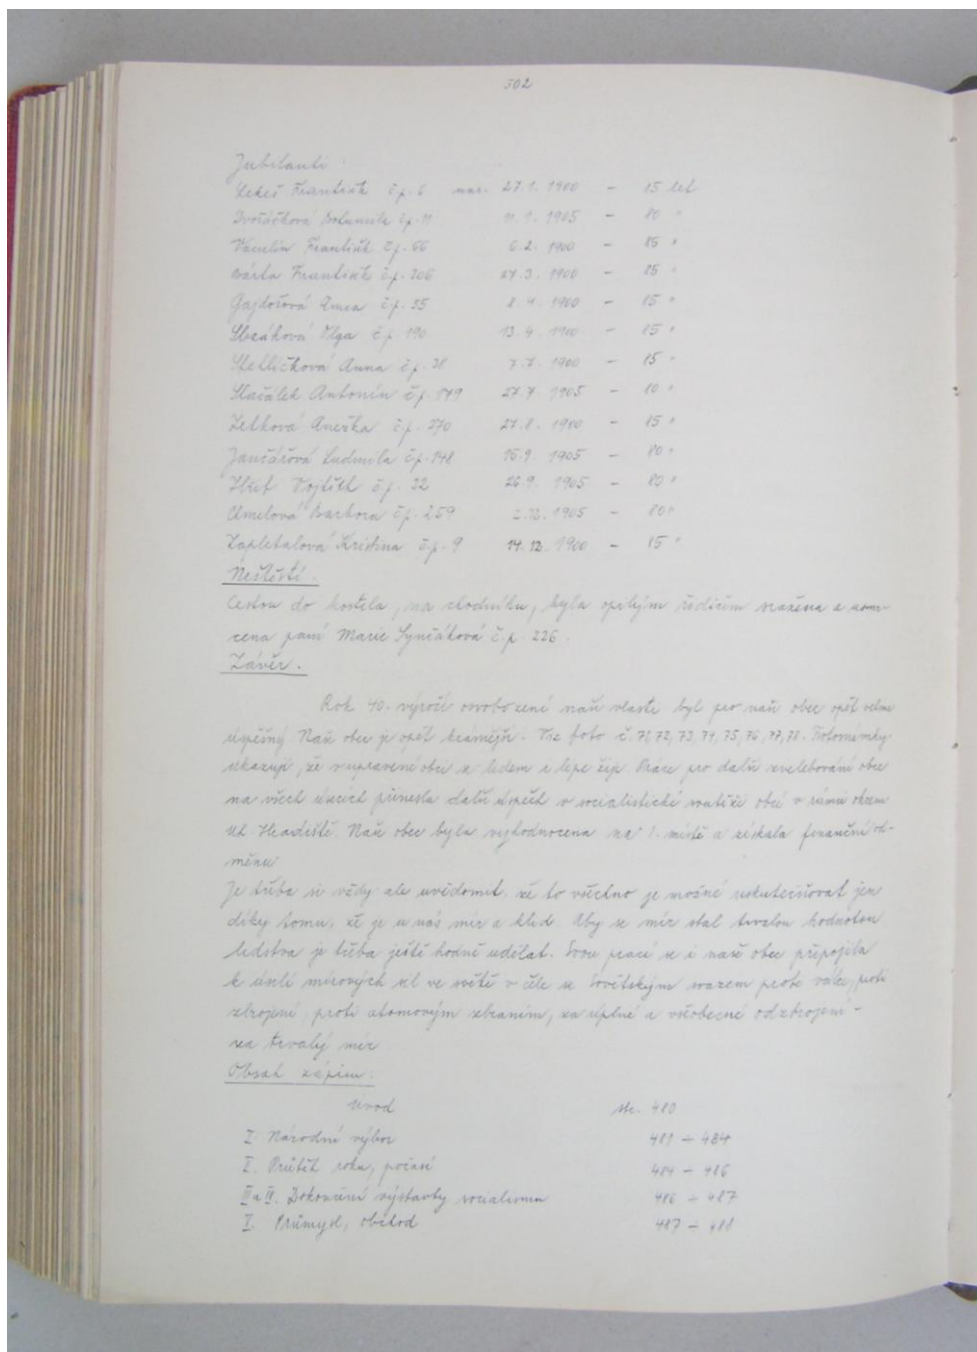 502
Jubilanti:
Lekeš František č.p. 6 nar. 27.1. 1900 - 85 let
Dvořáčková Bohumila č.p. 11 11.1. 1905 - 80 "
Václavín František č.p. 66 6.2. 1900 - 85 "
Bárta František č.p. 206 27.3. 1900 - 85 "
Gajdošová Anna č.p. 35 8.4. 1900 - 85 "
Slezáková Olga č.p. 190 13.4. 1900 - 85 "
Anna č.p. 28 7.7. 1900 - 85 "
Antonín č.p. 149 27.7. 1905 - 80 "
Zetková Anežka č.p. 270 27.8. 1900 - 85 "
Jančářová Ludmila č.p. 148 15.9. 1905 - 80 "
Vojtěch č.p. 32 26.9. 1905 - 80 "
Chmelová Barbora č.p. 259 1905 - 80 "
Zapletalová Kristina č.p. 9 14.12. 1900 - 85 "
Neštěstí.
Cestou do kostela, na chodníku, byla opilým řidičem sražena a usmr-
cena paní Marie Synčáková č.p. 226.
Závěr.
Rok 40. výročí osvobození naší vlasti byl pro naši obec opět velmi
úspěšný. Naše obec je opět krásnější. Viz foto č. 71, 72, 73, 74, 75, 76, 77, 78. Fotosnímky
ukazují, že v upravené obci se lidem i lépe žije. Práce pro další zvelebování obce
na všech úsecích přinesla další úspěch v socialistické soutěži obcí v rámci okresu
Uh. Hradiště. Naše obec byla vyhodnocena na 1. místě a získala finanční od-
měnu.
Je třeba si vždy ale uvědomit, že to všechno je možné uskutečňovat jen
díky tomu, že je u nás mír a klid. Aby se mír stal trvalou hodnotou
lidstva je třeba ještě hodně udělat. Svou prací se i naše obec připojila
k úsilí mírových sil ve světě v čele se Sovětským svazem proti válce, proti
zbrojení, proti atomovým zbraním, za úplné a všeobecné odzbrojení -
za trvalý mír.
Obsah zápisu:
Úvod str. 480
I. Národní výbor 481 ÷ 484
II. Průběh roku, počasí 484 - 486
III a IV. Dokončení výstavby socialismu 486 ÷ 487
V. Průmysl, obchod 487 ÷ 488